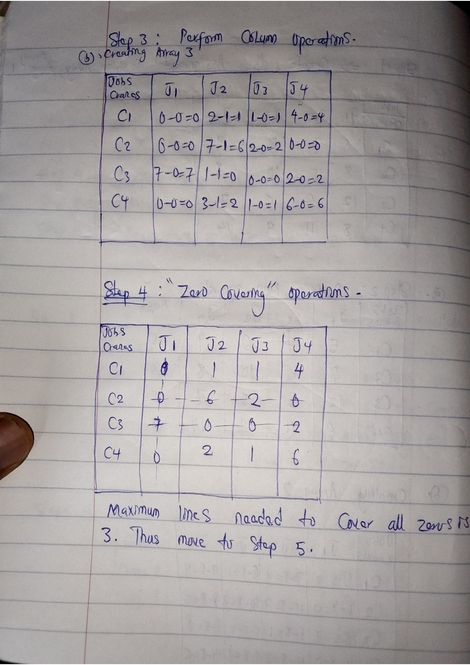 Step 3 : Perform Column Operations.
(b). Creating Array 3
Jobs
Cranes J1 J2 J3 J4
C1 0-0=0 2-1=1 1-0=1 4-0=4
C2 0-0=0 7-1=6 2-0=2 0-0=0
C3 7-0=7 1-1=0 0-0=0 2-0=2
C4 0-0=0 3-1=2 1-0=1 6-0=6
Step 4 : "Zero Covering" Operations.
Jobs
Cranes J1 J2 J3 J4
C1 0 1 1 4
C2 0 6 2 0
C3 7 0 0 2
C4 0 2 1 6
Maximum lines needed to Cover all zeros is
3. Thus move to Step 5.